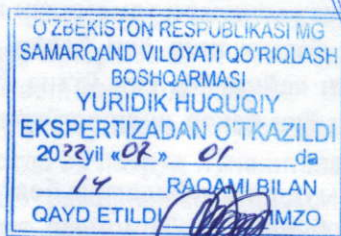 O'ZBEKISTON RESPUBLIKASI MG
SAMARQAND VILOYATI QO'RIQLASH
BOSHQARMASI
YURIDIK HUQUQIY
EKSPERTIZADAN O'TKAZILDI
2022yil «07» 01 da
14 RAQAMI BILAN
QAYD ETILDI IMZO